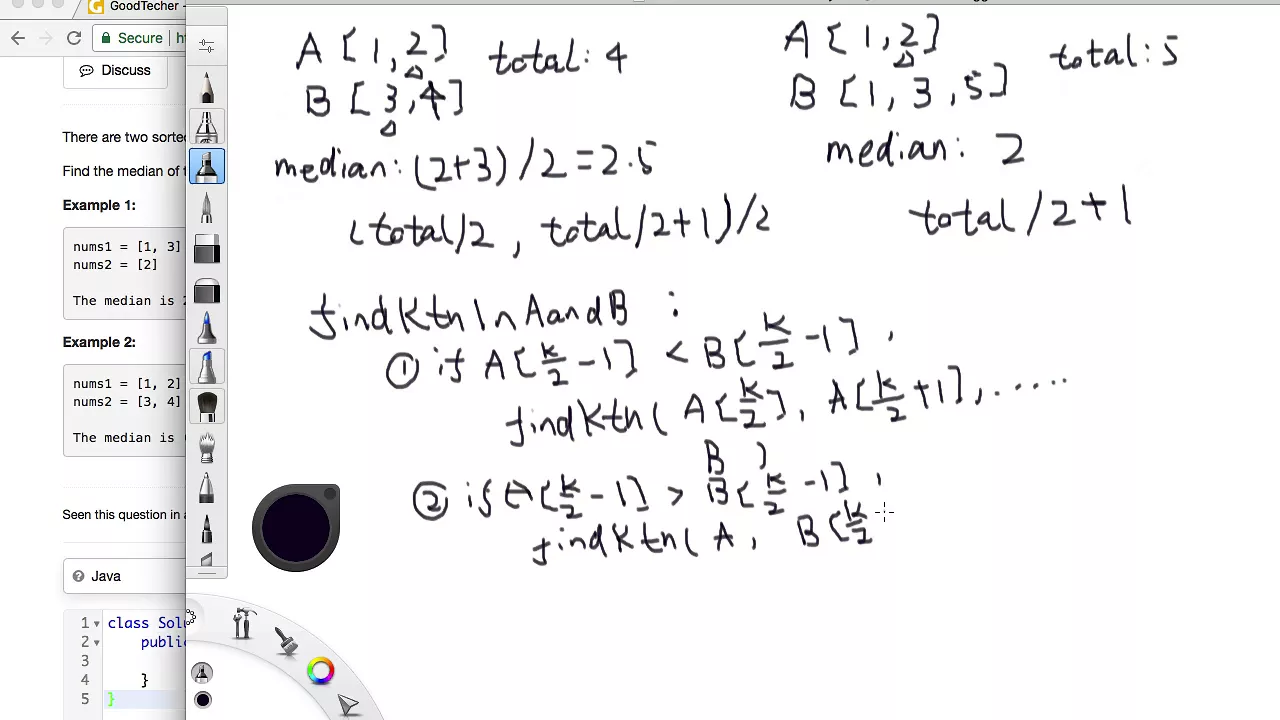 GoodTecher
Secure
Discuss
There are two sorte
Find the median of
Example 1:
nums1 = [1, 3]
nums2 = [2]
The median is 2
Example 2:
nums1 = [1, 2]
nums2 = [3, 4]
The median is
Seen this question in a
Java
1 class Solu
2 public
3
4 }
5 }
A [1, 2] total: 4
B [3, 4]
median: (2+3) / 2 = 2.5
(total/2, total/2+1)/2
A [1, 2] total: 5
B [1, 3, 5]
median: 2
total / 2 + 1
findKthInAandB :
① if A[k/2 - 1] < B[k/2 - 1],
findKth( A[k/2], A[k/2 + 1], ......
B )
② if A[k/2 - 1] > B[k/2 - 1],
findKth( A, B[k/2